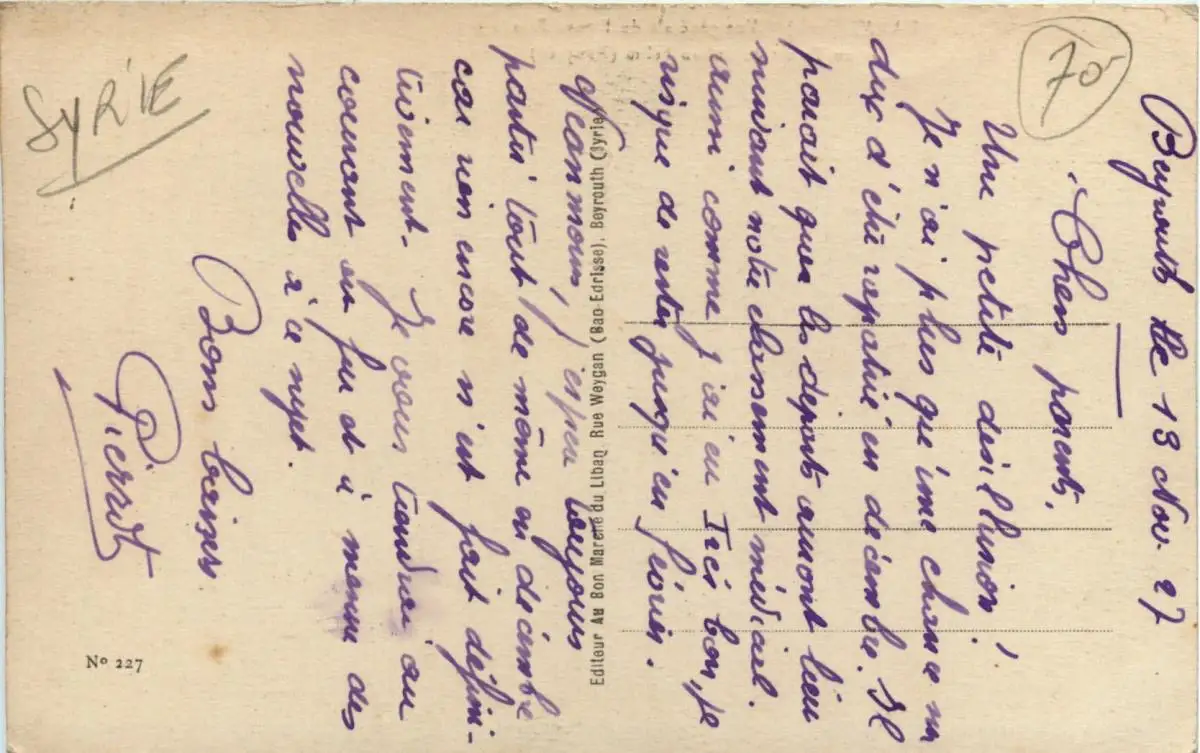 Beyrouth le 13 Nov. 27
Chers parents,
Une petite désillusion!
Je n'ai plus qu'une chance sur
dix d'être rapatrié en décembre. Il
parait que les départs auront lieu
suivant notre classement médical.
aussi comme j'ai eu Très bon, je
risque de rester jusqu'en février.
Néanmoins, j'espère toujours
partir tout de même en décembre
car rien encore n'est fait défini-
tivement. Je vous tiendrai au
courant au fur et à mesure des
nouvelles à ce sujet.
Bons baisers
Pierrot
70
SYRIE
Editeur Au Bon Marché du Liban Rue Weygan (Bao-Edrisse), Beyrouth (Syrie)
Nº 227